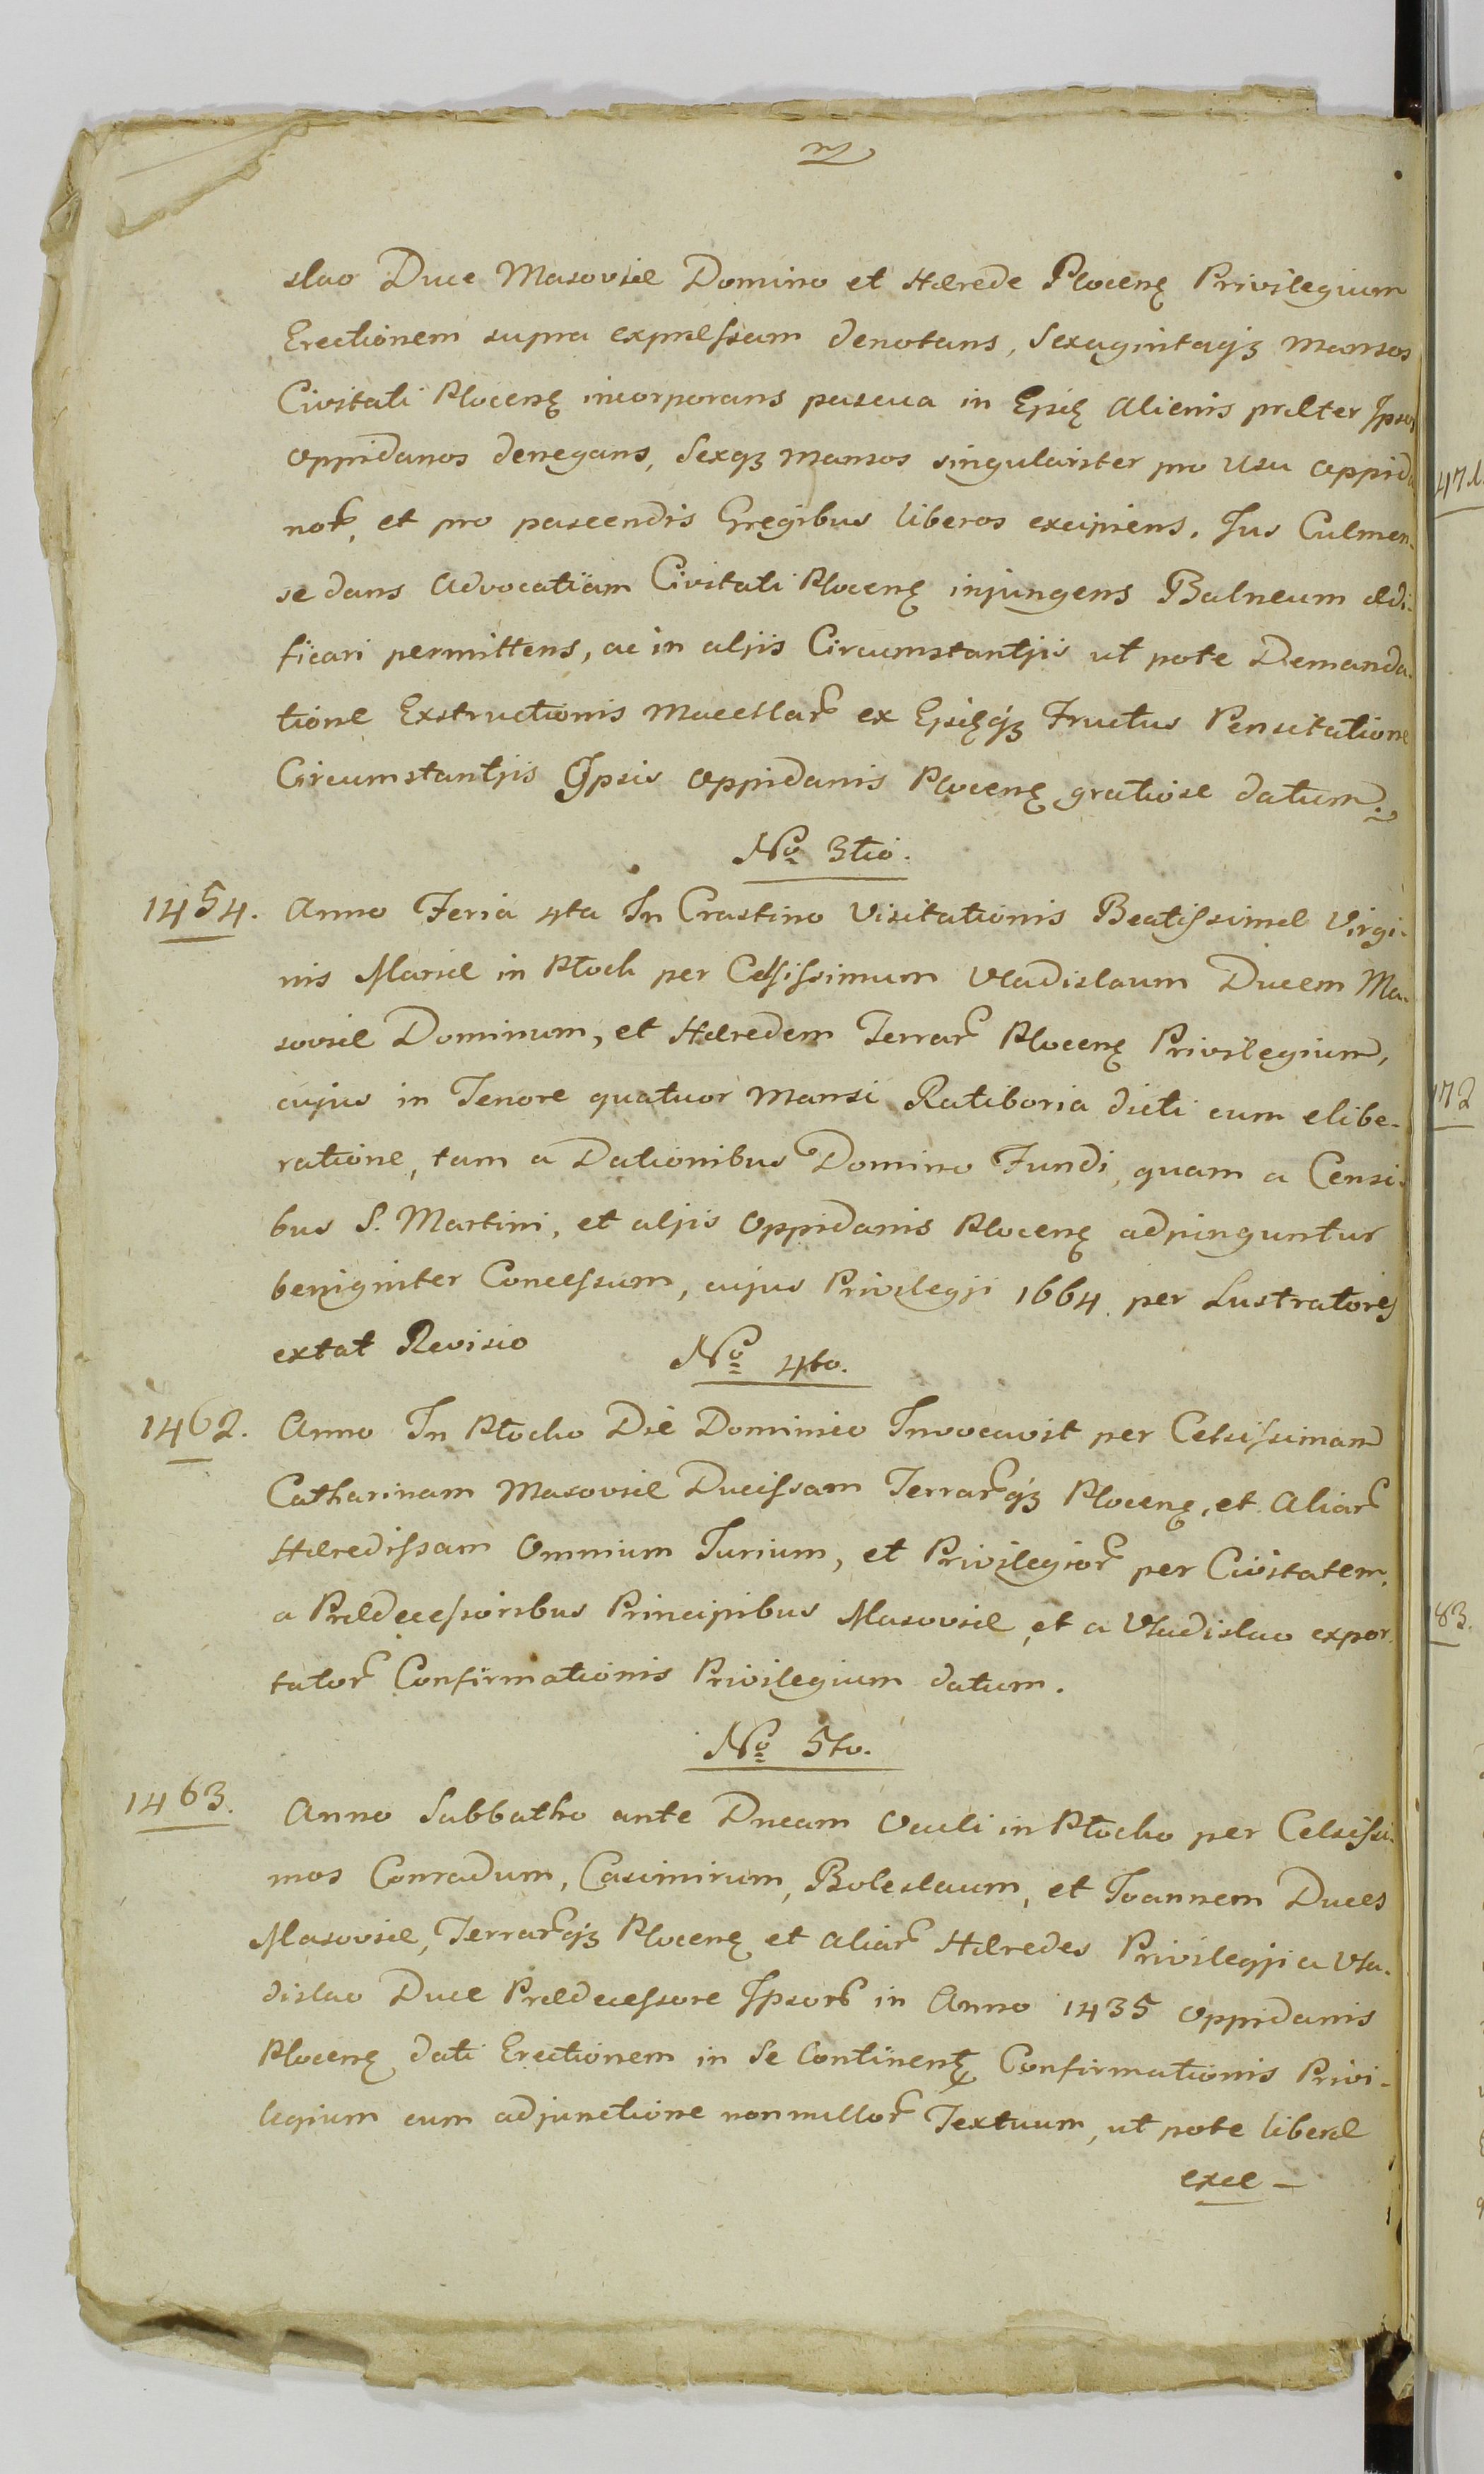 slao Duce Masoviæ Domino et Hærede Plocenę Privilegium
Erectionem supra expræssam denotans, Sexagintaqꝫ mansos
Civitati Plocenę incorporans pascua in Ejsę alienis præter Ipsos
oppidanos denegans, Sexqꝫ mansos singulariter pro usu oppida
noꝝ, et pro pascendis Gregibus liberos excipiens. Jus Culmen-
se dans Advocatiam Civitati Plocenę injungens Balneum ædi-
ficari permittens, ac in aljis Circumstantjis ut pote Demanda-
tione Exstructionis Macellaꝝ ex Ejsęqꝫ Fructus Pensitatione
Circumstantjis Ipsis oppidanis Plocenę gratiose datum.
No 3tio.
1454. Anno Feria 4ta In Crastino Visitationis Beatissimæ Virgi-
nis Mariæ in Płock per Celsissimum Vladislaum Ducem Ma-
soviæ Dominum, et Hæredem Terraꝝ Plocenę Privilegium,
cujus in Tenore quatuor mansi Ratiboria dicti cum elibe-
ratione, tam a Dationibus Domino Fundi, quam a Censi-
bus S. Martini, et aljis oppidanis Plocenę adpinguntur
benigniter Concessum, cujus Privilegji 1664 per Lustratores
extat Revisio
No 4to.
1462. Anno In Płocko Die Dominico Invocavit per Celsissimam
Catharinam Masoviæ Ducissam Terraꝝqꝫ Plocenę, et Aliaꝝ
Hæredissam Omnium Jurium, et Privilegioꝝ per Civitatem
a Prædecessoribus Principibus Masoviæ, et a Vladislao expor-
tatoꝝ Confirmationis Privilegium datum.
No 5to.
1463. Anno Sabbatho ante Dncam Oculi in Płocko per Celsissi-
mos Conradum, Casimirum, Boleslaum, et Joannem Duces
Masoviæ, Terraꝝqꝫ Plocenę et aliaꝝ Hæredes Privilegji a Vla-
dislao Duce Prædecessore Ipsoꝝ in Anno 1435 oppidanis
Plocenę dati Erectionem in Se Continentę Confirmationis Privi-
legium cum adjunctione nonnulloꝝ Textuum, ut pote liberæ
exce-
471
72
83.